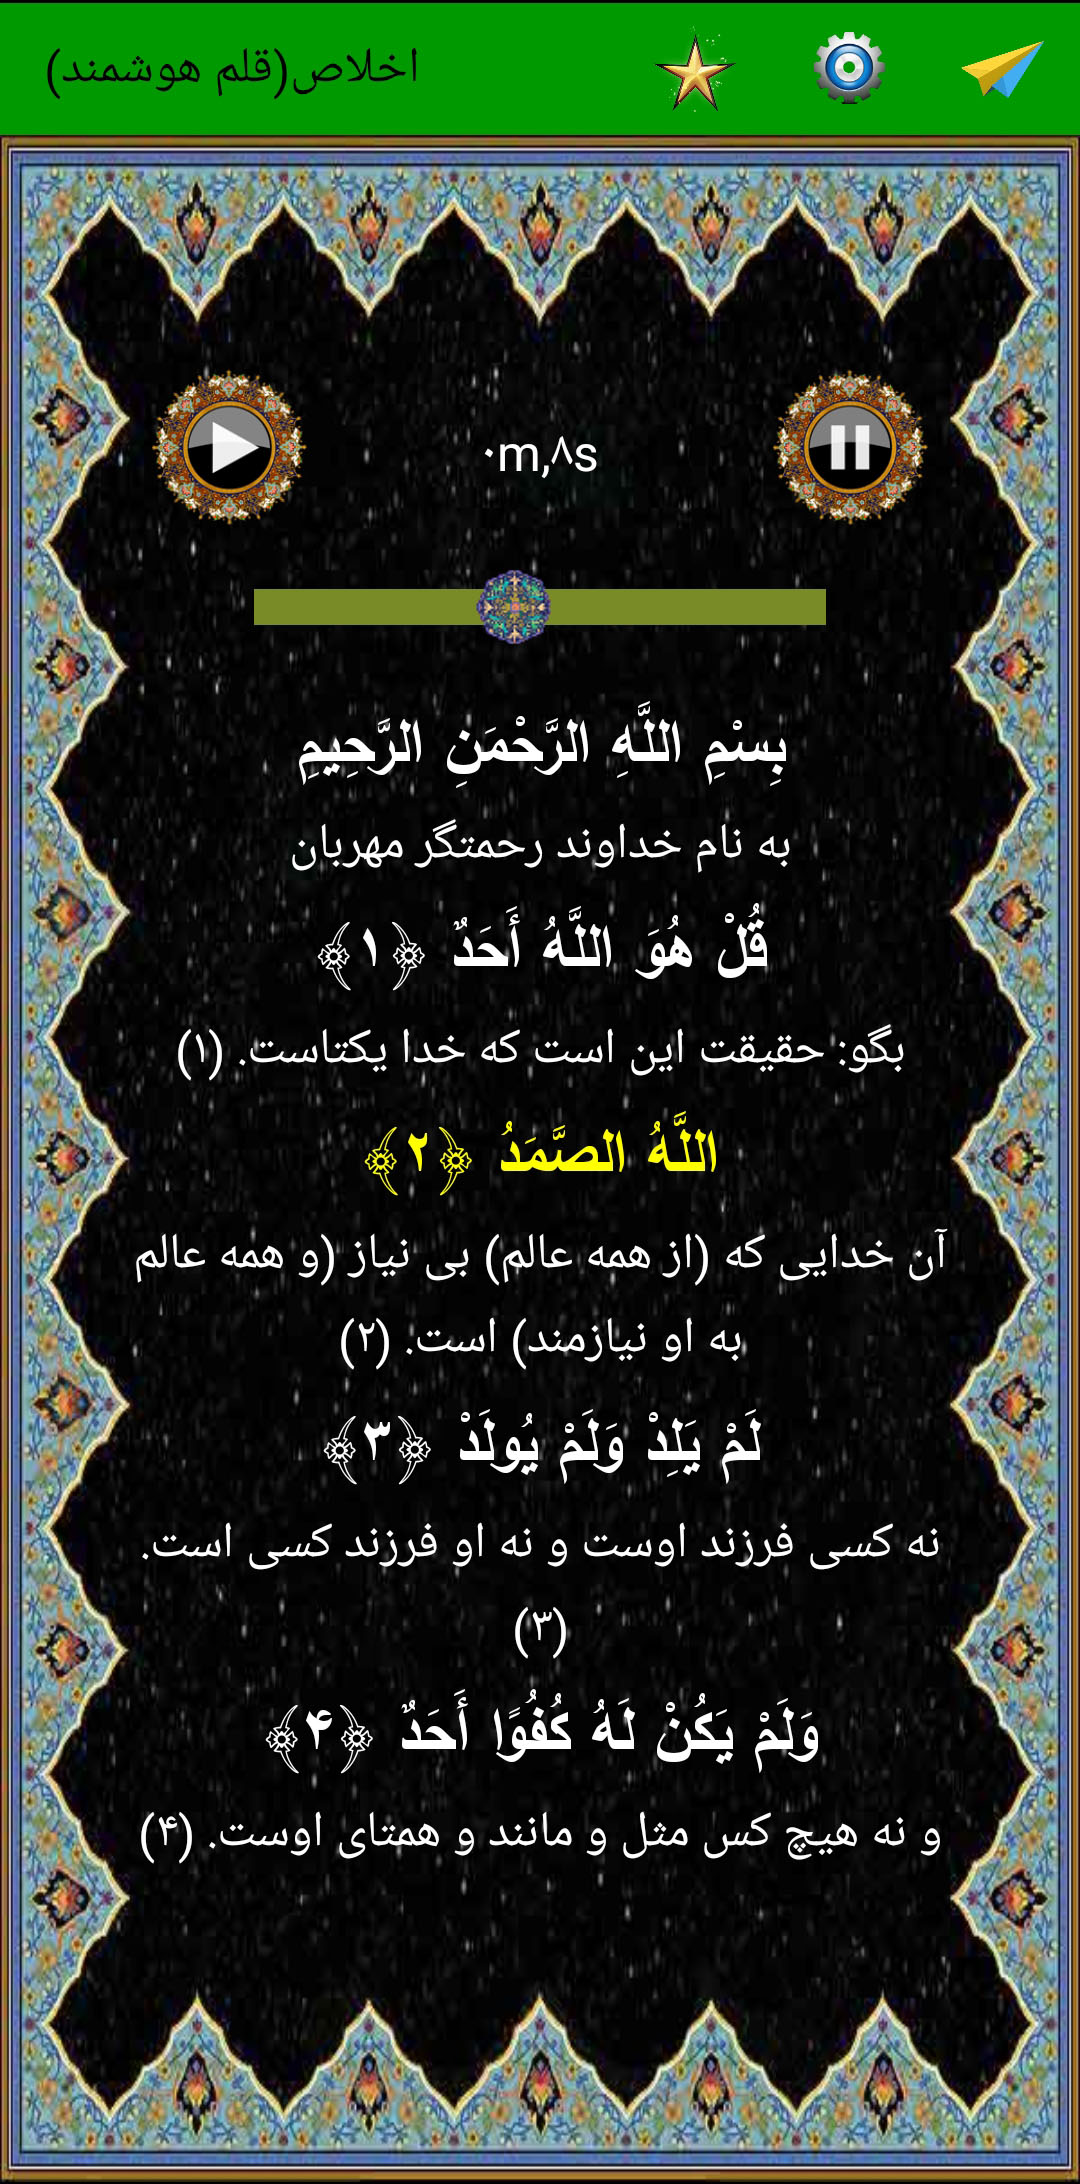 اخلاص(قلم هوشمند)
۰m,۸s
بِسْمِ اللَّهِ الرَّحْمَنِ الرَّحِيمِ
به نام خداوند رحمتگر مهربان
قُلْ هُوَ اللَّهُ أَحَدٌ ﴿۱﴾
بگو: حقیقت این است که خدا یکتاست. (۱)
اللَّهُ الصَّمَدُ ﴿۲﴾
آن خدایی که (از همه عالم) بی نیاز (و همه عالم
به او نیازمند) است. (۲)
لَمْ يَلِدْ وَلَمْ يُولَدْ ﴿۳﴾
نه کسی فرزند اوست و نه او فرزند کسی است.
(۳)
وَلَمْ يَكُنْ لَهُ كُفُوًا أَحَدٌ ﴿۴﴾
و نه هیچ کس مثل و مانند و همتای اوست. (۴)